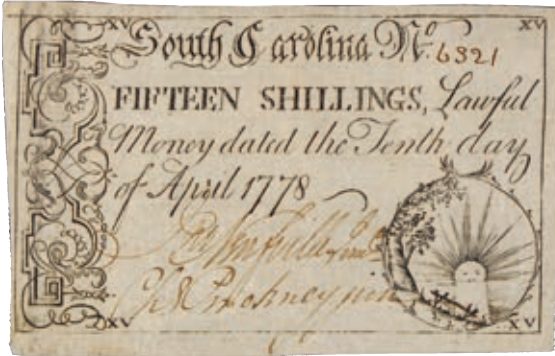 XV XV
South Carolina No. 6321
FIFTEEN SHILLINGS, Lawful
Money dated the Tenth day
of April 1778
XV XV